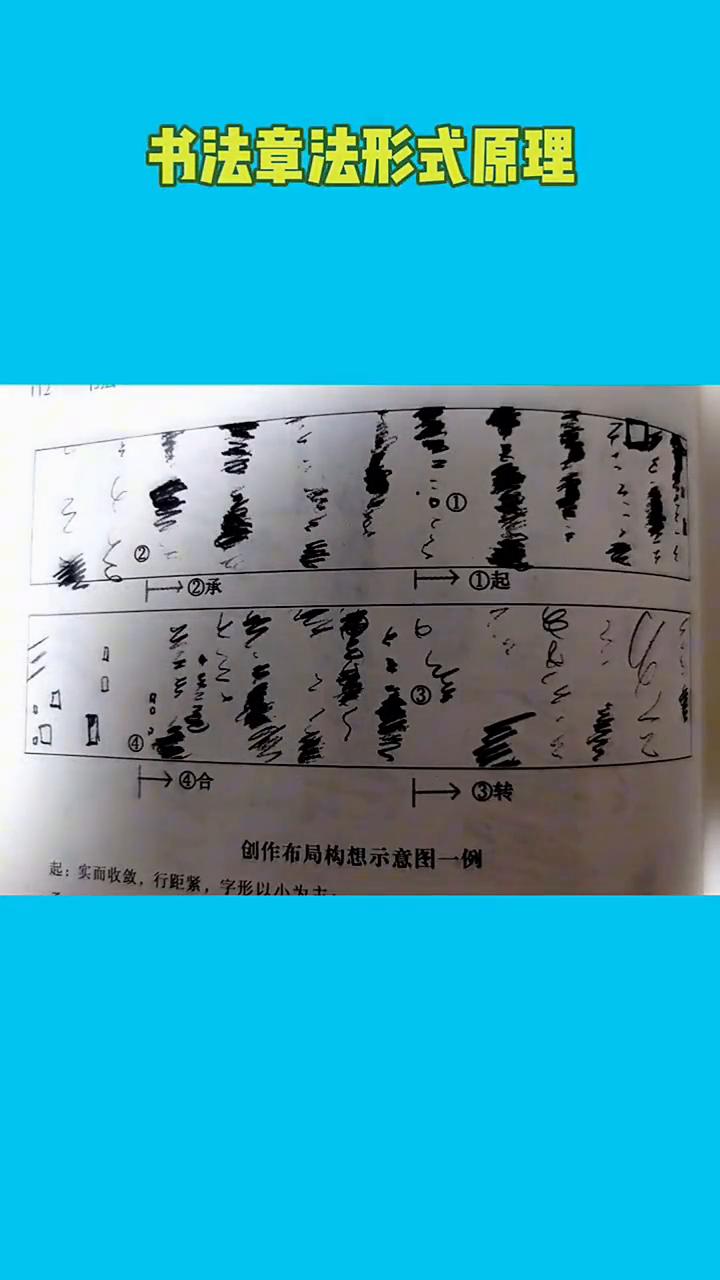 书法章法形式原理
112
①
②
②承
①起
③
④
④合
③转
创作布局构想示意图一例
起：实而收敛，行距紧，字形以小为主，